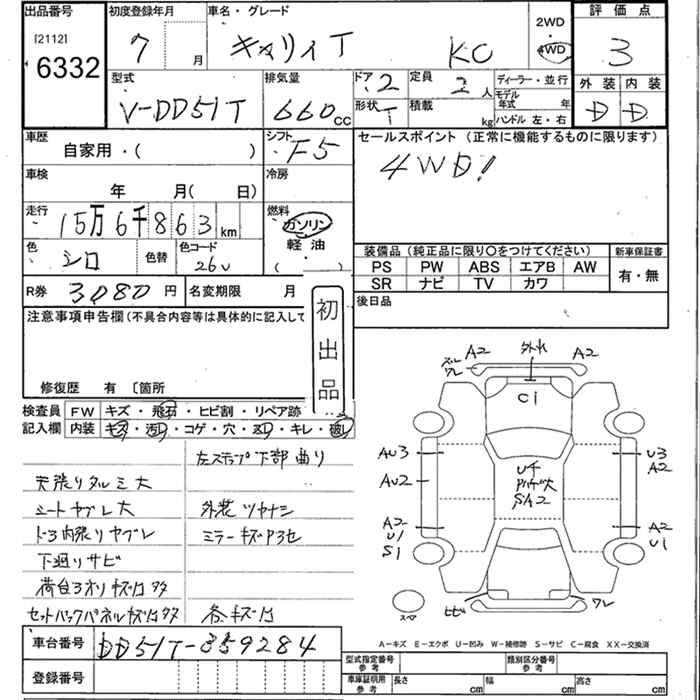 出品番号 初度登録年月 車名・グレード 2WD 4WD 評価点
[2112]
6332 7 月 キャリィT KC 3
型式 排気量 ドア 2 定員 2人 ディーラー・並行 外装 内装
V-DD51T 660cc 形状 T 積載 kg モデル年式 年 ハンドル 左・右 D D
車歴 シフト F5 セールスポイント (正常に機能するものに限ります)
自家用・( ) 4WD!
車検 冷房
年 月( 日)
走行 燃料
15万6千863km ガソリン
軽油
( )
色 シロ 色替 色コード 26U
装備品 (純正品に限り○をつけてください) 新車保証書
PS PW ABS エアB AW 有・無
SR ナビ TV カワ
R券 3080円 名変期限 月 後日品
注意事項申告欄 (不具合内容等は具体的に記入して 初出品
修復歴 有 〔箇所
検査員 FW キズ・飛石・ヒビ割・リペア跡
記入欄 内装 キズ・汚レ・コゲ・穴・スレ・キレ・破レ
左ステップ下部曲り
天張りタルミ大
シートヤブレ大 外装ツヤナシ
ドア内張りヤブレ ミラーキズP3セ
下廻りサビ
荷台3オリキズ凹多タ
セットバックパネルキズ凹多タ 各キズ凹
A2 外れ A2
ワレ
Ci
AU3 U3
A2
AU2
ウチ
大
SA2
A2 A2
U1 U1
S1
スペア ヒビ ワレ
A-キズ E-エクボ U-凹み W-補修跡 S-サビ C-腐食 XX-交換済
車台番号 DD51T-359284
型式指定番号 参考 類別区分番号 参考
登録番号 車庫証明用 参考 長さ cm 幅 cm 高さ cm